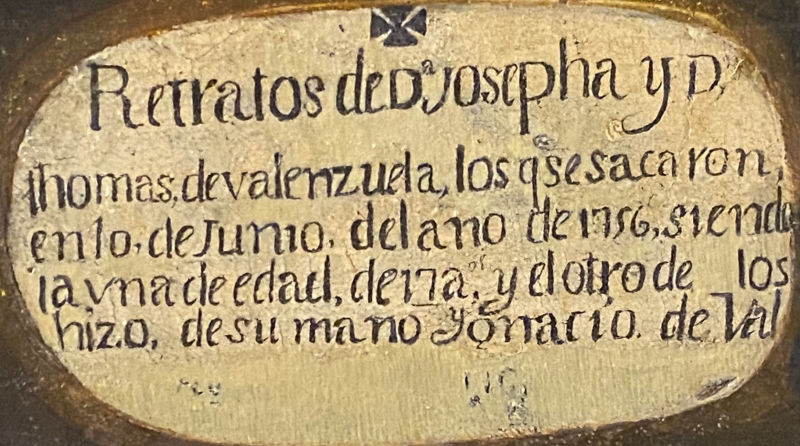 Retratos de Dª Josepha y D.
thomas, de valenzuela, los q se sacaron,
en 10, de Junio, del ano de 1756, siendo
la vna de edad, de 17 aºˢ, y el otro de los
hizo, de su mano Ygnacio. de Val